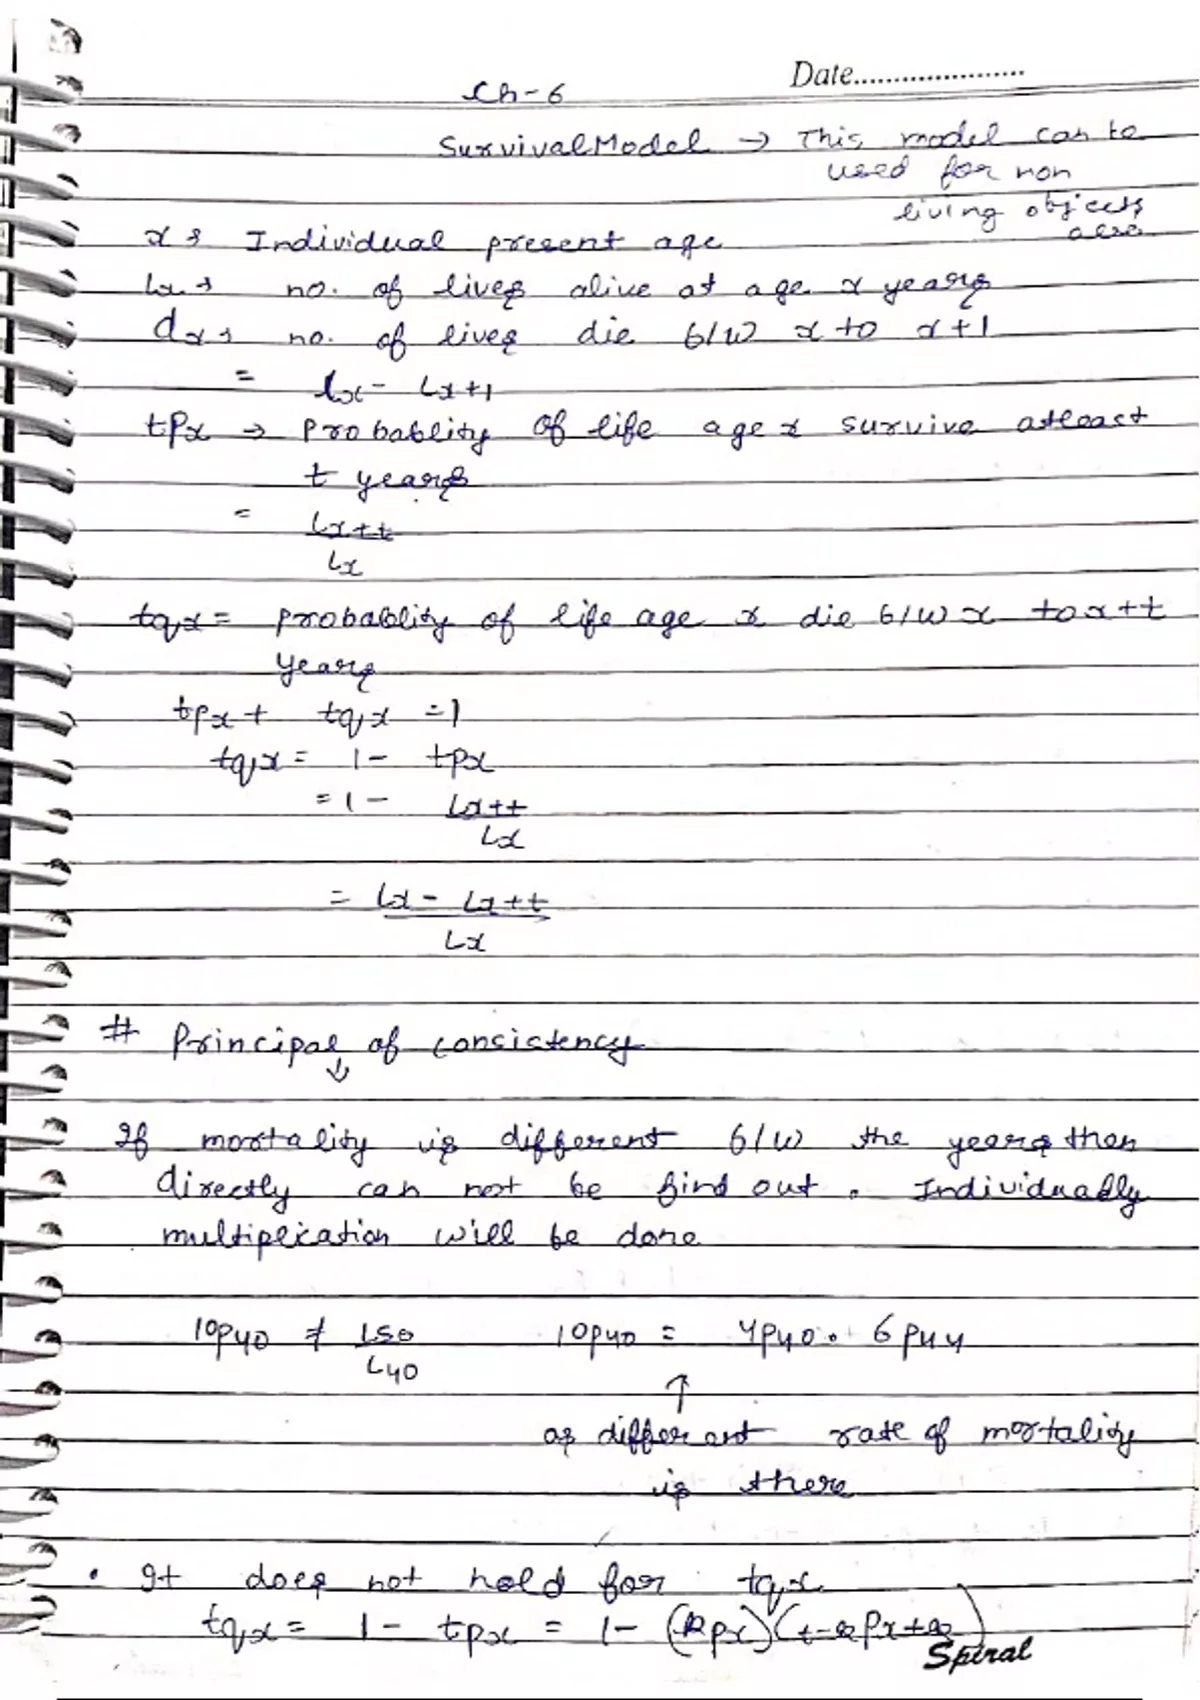 Date.....................
Ch-6
Survival Model → This model can be
used for non
living objects
also
x → Individual present age
Lx → no. of lives alive at age x years
dx → no. of lives die b/w x to x+1
= lx - Lx+1
tPx → Probablity of life age x survive atleast
t years
= Lx+t
Lx
tqx = Probablity of life age x die b/w x to x+t
years
tpx + tqx = 1
tqx = 1 - tpx
= 1 - Lx+t
Lx
= Lx - Lx+t
Lx
# Principal of consistency
↓
If mortality is different b/w the years then
directly can not be find out. Individually
multiplication will be done
10p40 ≠ L50
L40
10p40 = 4p40 . 6p44
↑
as different rate of mortality
is there
• It does not hold for tqx
tqx = 1 - tpx = 1 - (kpx)(t-kpx+k)
Spiral